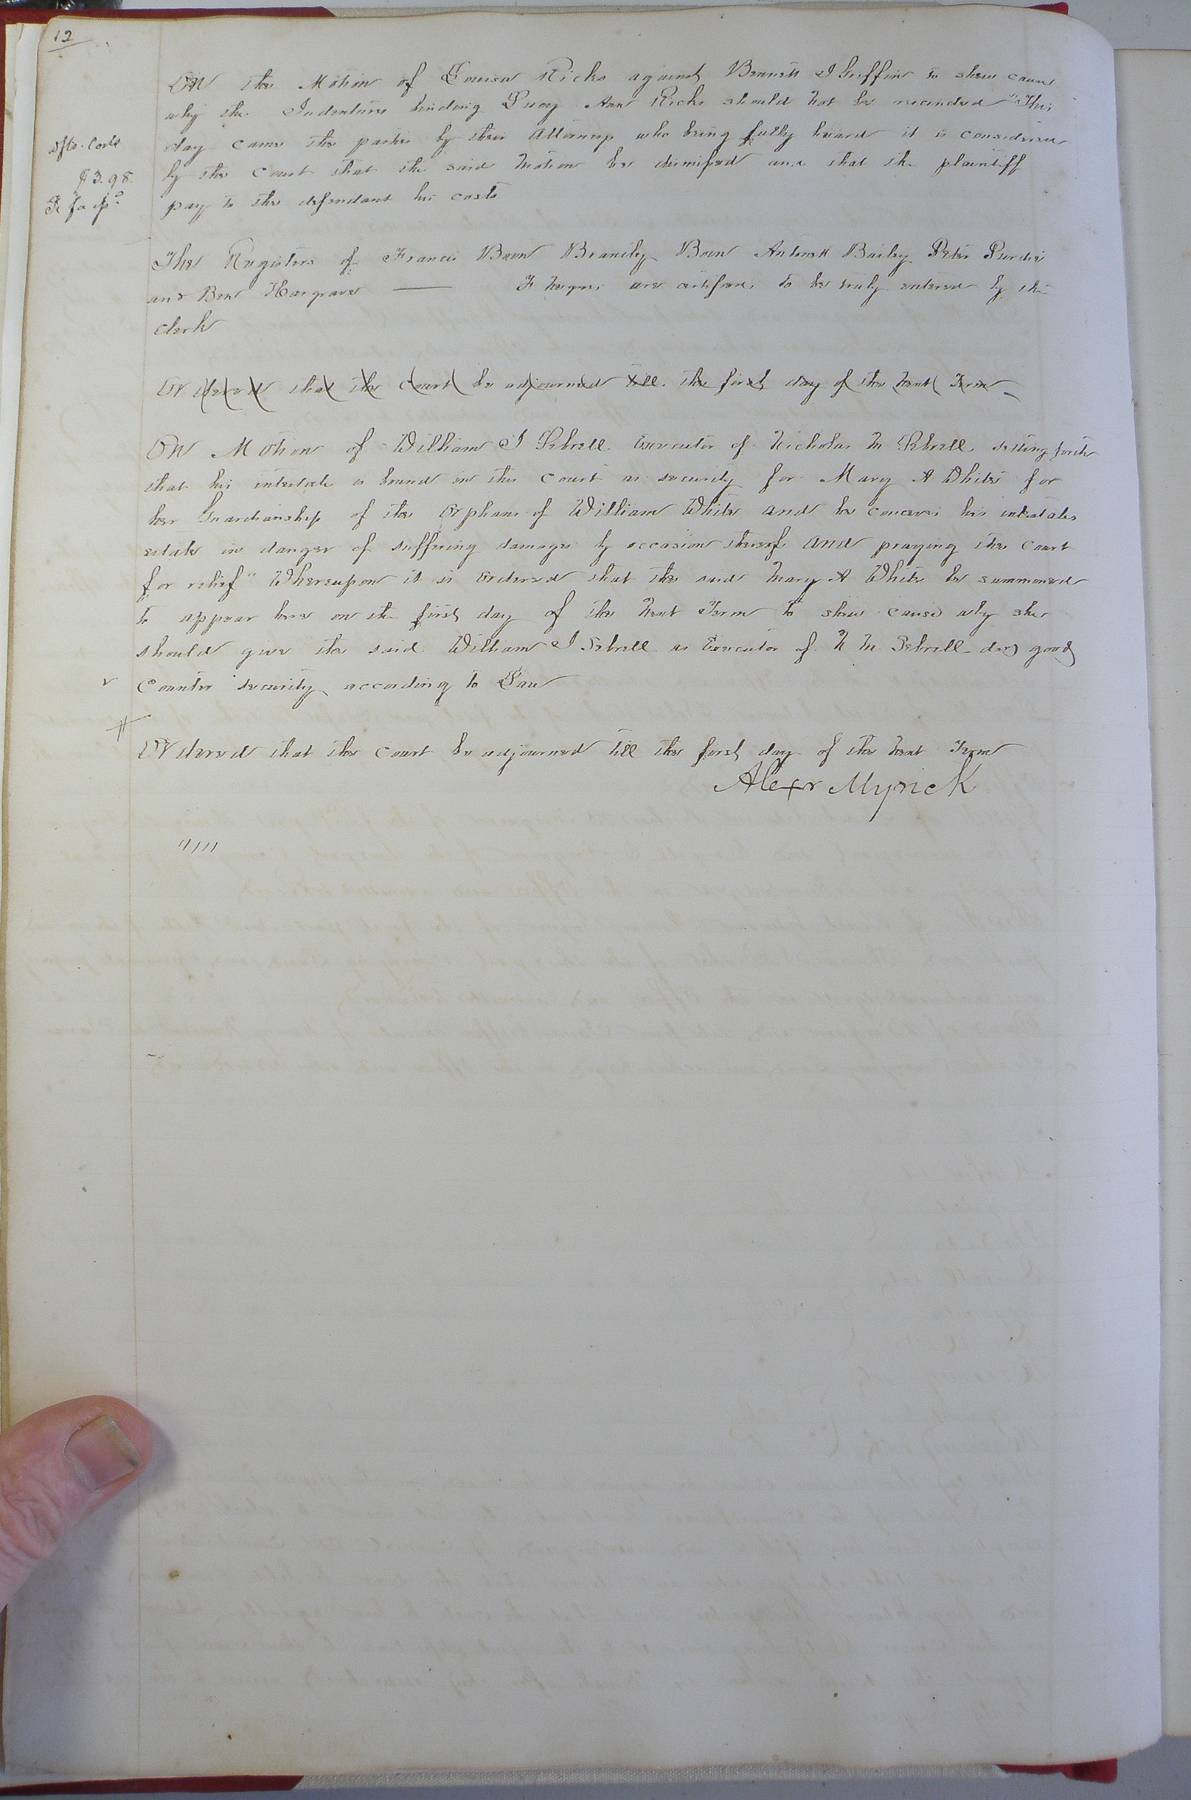 12
On the Motion of Louisa Ricks against Bennett J Griffin to shew cause
why the Indenture binding Ann Ricks should not be recinded "This
day came the parties by their Attorneys who being fully heard it is considered
by the Court that the said motion be dismissed and that the plaintiff
pay to the defendant his costs
dfts. Costs
$3.98
Fi fa
The Registers of Francis Bown Brantley Bown Anthony Bailey Peter Purdie
and Ben Hargrave —— F Negroes are certified to be truly entered by the
clerk
Ordered that the Court be adjourned till the first day of the next Term
On Motion of William J Sebrell Executor of Nicholas M Sebrell setting forth
that his intestate is bound in this Court as security for Mary A White for
her Guardianship of the Orphans of William White and he conceives his intestates
estate in danger of suffering damages by occasion thereof and praying the Court
for relief" Whereupon it is Ordered that the said Mary A White be summoned
to appear here on the first day of the next Term to shew cause why she
should give the said William J Sebrell as Executor of N M Sebrell decd good
Counter security according to Law
Ordered that the Court be adjourned till the first day of the next Term
Alexr Myrick